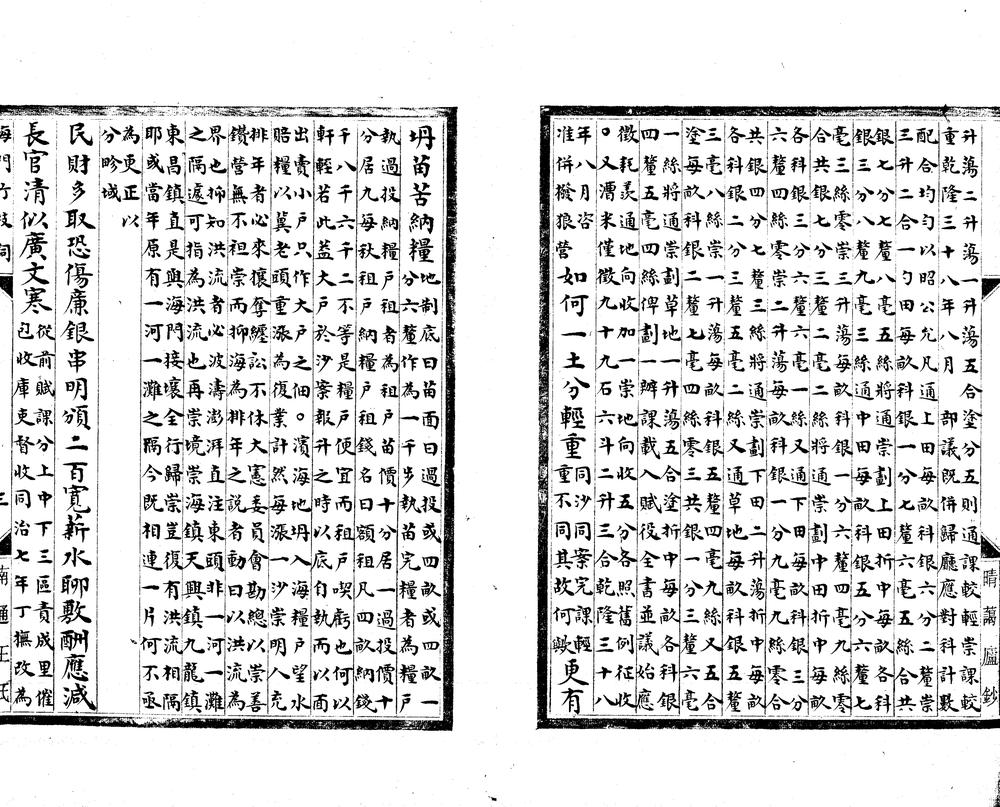 升蕩二升蕩一升蕩五合塗分五則通課較輕崇課較
重乾隆三十八年八月 部議既併歸廳應對科計數
配合均勻以昭公允凡通上田每畝科銀六分二釐崇
三升二合一勺田每畝科銀一分七釐六毫五絲合共
銀七分七釐八毫五絲將通崇劃上田折中每畝各科
銀三分八釐九毫三絲通中田每畝科銀五分六釐七
毫三絲零崇三升蕩每畝科銀一分六釐四毫九絲零
合共銀七分三釐二毫二絲將通崇劃中田折中每畝
各科銀三分六釐六毫一絲又通下田每畝科銀三分
六釐四絲零崇二升蕩每畝科銀一分九毫九絲零合
共銀四分七釐三絲將通崇劃下田二升蕩折中每畝
各科銀二分三釐五毫二絲又通草地每畝科銀五釐
三毫八絲崇一升蕩每畝科銀五釐四毫九絲又五合
塗每畝科銀二釐七毫四絲零三共銀一分三釐六毫
一絲將通崇劃草地一升蕩五合塗折中每畝各科銀
四釐五毫四絲俾劃一辦課載入賦役全書並議始應
徵耗羡通地向收加一崇地向收五分各照舊例征收
。又漕米僅徵九十九石六斗二升三合乾隆三十八
年八月咨
准併撥狼營如何一土分輕重同沙同案完課輕重不同其故何歟更有
晴藹廬鈔
坍苗苦納糧地制底曰苗面曰過投或四畝或四畝一分六釐作為一千步執苗完糧者為糧戶
執過投納糧戶租者為租戶苗價十分居一過投價十
分居九每秋租戶納糧戶租錢名曰額租凡四畝納錢
千八千六千二不等是糧戶便宜而租戶喫虧也何以
軒輊若此蓋大戶於沙案報升之時以底自執而以面
出賣小戶只作大戶之佃。濱海地坍入海糧戶望水
賠糧以冀老頭重漲為復業計然每漲一沙崇明人充
排年者必來攘奪纏訟不休大憲委員會勘總以崇善
鑽營無不袒崇而抑海為排年之說者動曰以洪流為
界也抑知洪流者必波濤澎湃直注東頭非一河一灘
之隔遽可指為洪流也再崇境崇海鎮天興鎮九龍鎮
東昌鎮直是與海門接壤全行歸崇豈復有洪流相隔
耶或當年原有一河一灘之隔今既相連一片何不亟
為更正以
分畛域
民財多取恐傷廉銀串明頒二百寬薪水聊敷酬應減
長官清似廣文寒從前賦課分上中下三區責成里催包收庫吏督收同治七年丁撫改為
海門竹枝詞 三 南通王氏